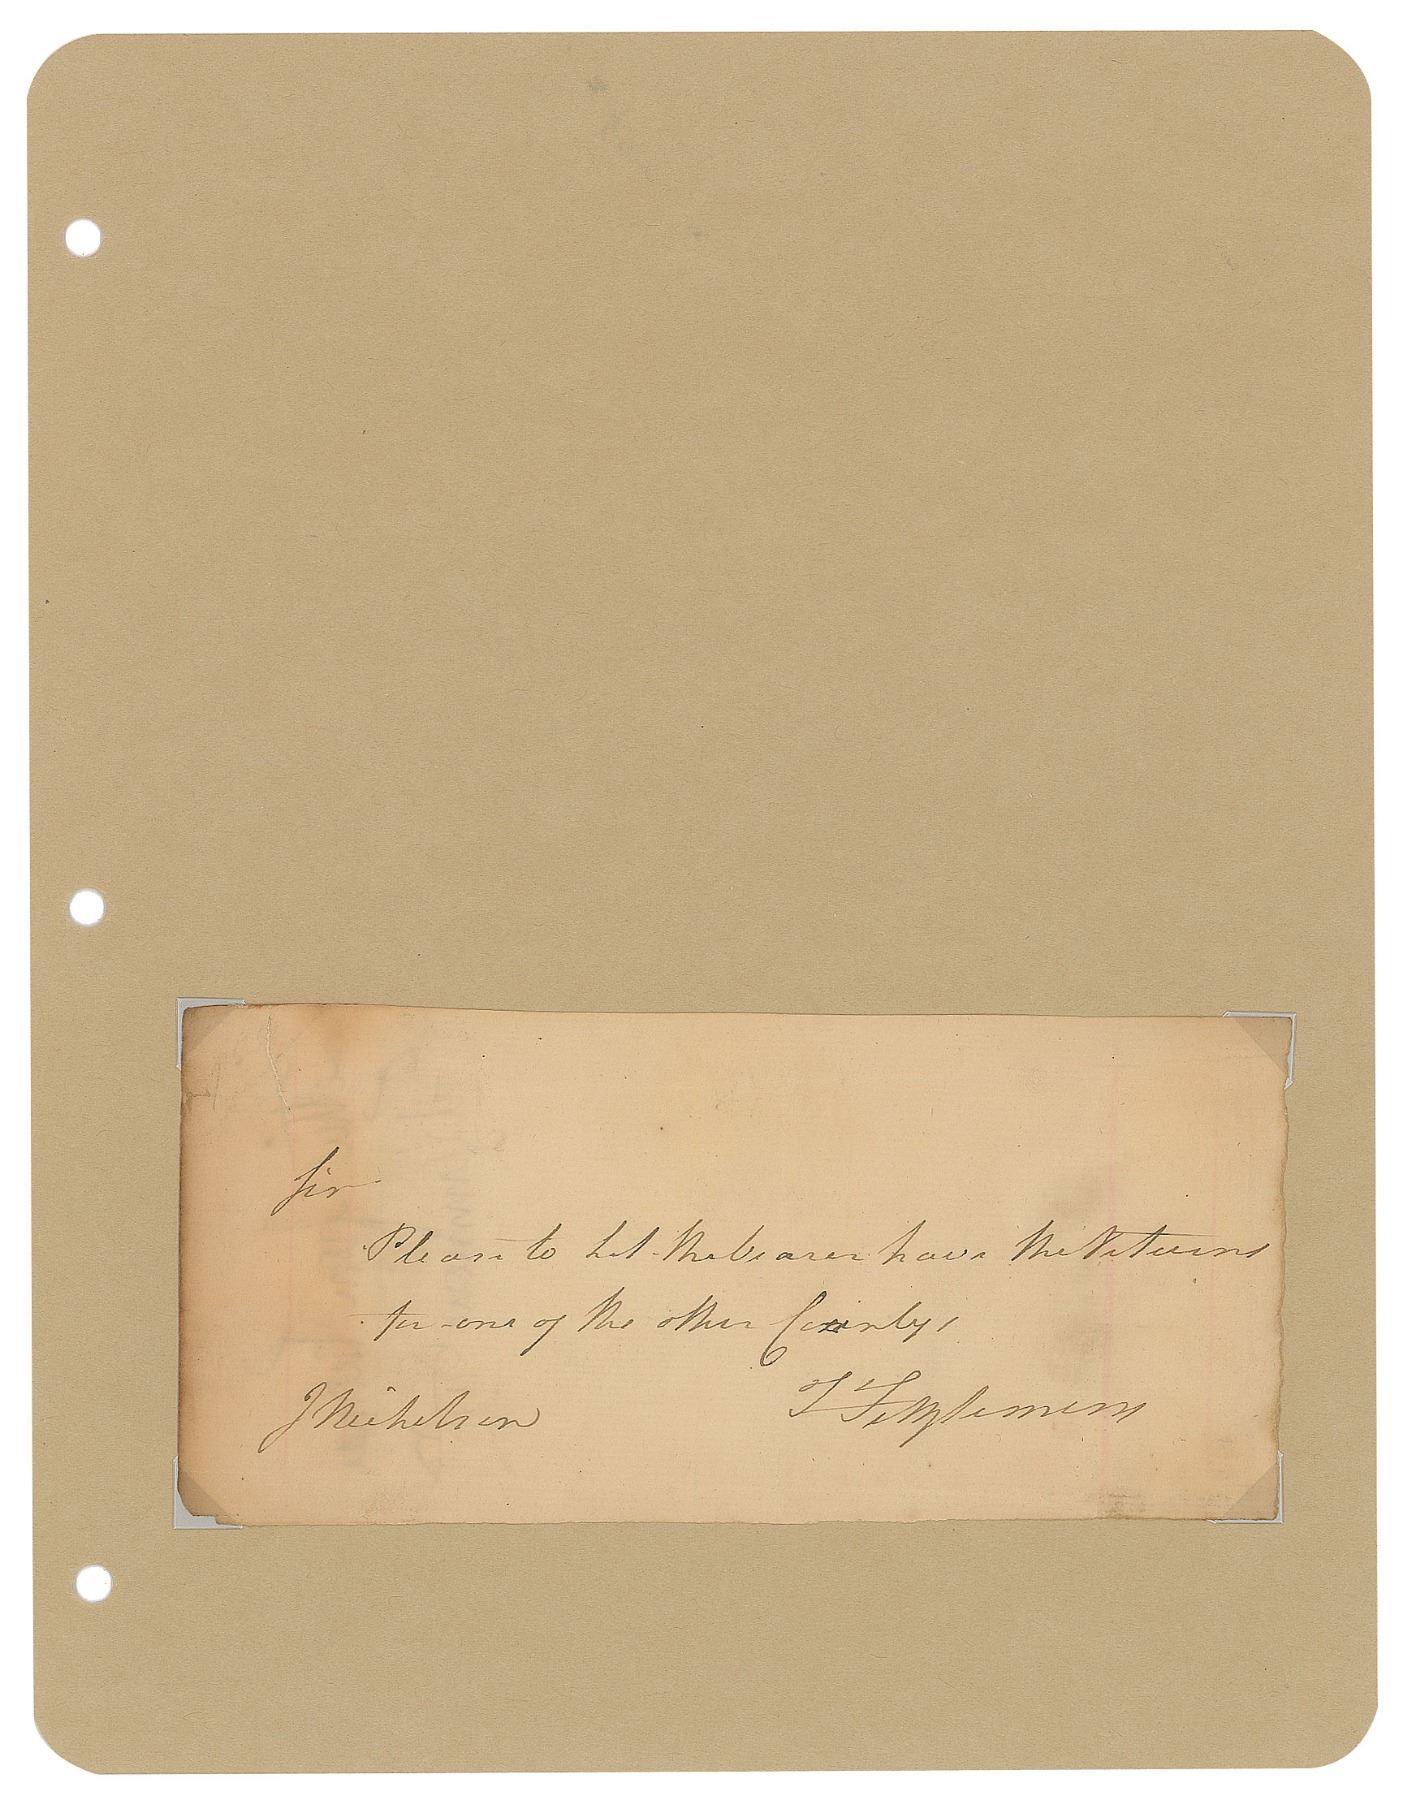 Sir
Please to let the bearer have the Returns
for one of the other Countys
J Nickelson T Fitzsimons